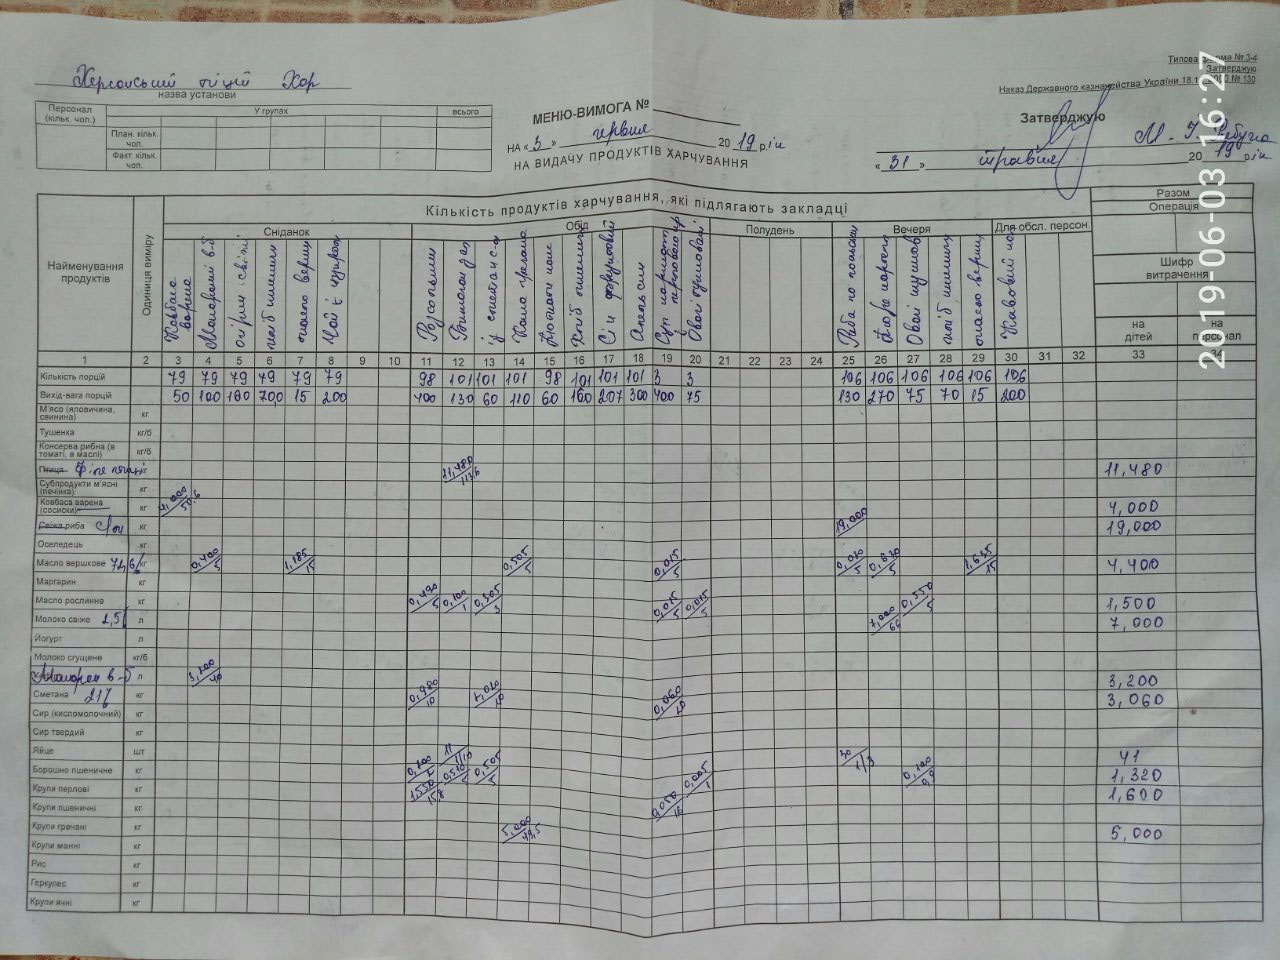 Типова форма № 3-4
Затверджую
Наказ Державного казначейства України 18.1 2000 № 130
Херсонський ліцей ХОР
назва установи
Персонал (кільк. чол.) У групах всього
План. кільк. чол.
Факт. кільк. чол.
МЕНЮ-ВИМОГА №
НА «3» червня 2019 рік
НА ВИДАЧУ ПРОДУКТІВ ХАРЧУВАННЯ
Затверджую
«31» травня 2019 рік
2019-06-03 16:27
Найменування продуктів
Одиниця виміру
Кількість продуктів харчування, які підлягають закладці
Разом
Операція
Шифр витрачення
на дітей на персонал
Сніданок Обід Полудень Вечеря Для обсл. персон.
Ковбаса варена
Макарони в-б
Огірки свіжі
Хліб пшеничн
масло вершк
Чай з цукром
Розсольник
із сметаною
Каша гречана
Хліб пшеничн
Сік фруктовий
Апельсин
Риба по польськи
Пюре картопл
Овочі тушков
масло вершк
Кавовий нап
1 2 3 4 5 6 7 8 9 10 11 12 13 14 15 16 17 18 19 20 21 22 23 24 25 26 27 28 29 30 31 32 33 34
Кількість порцій 79 79 79 79 79 79 98 101 101 101 98 101 101 101 3 3 106 106 106 106 106 106
Вихід-вага порцій 50 100 100 70,0 15 200 400 130 60 110 60 100 207 300 400 75 130 270 75 70 15 200
М'ясо (яловичина, свинина) кг
Тушенка кг/б
Консерва рибна (в томаті, в маслі) кг/б
Птиця Філе птиці кг 11,480/113,6 11,480
Субпродукти м'ясні (печінка) кг
Ковбаса варена (сосиски) кг 4,000/50.6 4,000
Свіжа риба кг 19,000 19,000
Оселедець кг
Масло вершкове 72,6% кг 0,400/5 1,185/15 0,505/5 0,015/5 0,030/5 0,630/5 1,635/15 4,400
Маргарин кг
Масло рослинне кг 0,490/5 0,100/1 0,305/3 0,015/5 0,015/5 0,550/5 1,500
Молоко свіже 2,5% л 7,000/66 7,000
Йогурт л
Молоко сгущене кг/б
Макарон в-б л 3,200/40 3,200
Сметана 21% кг 0,980/10 2,020/20 0,060/20 3,060
Сир (кисломолочний) кг
Сир твердий кг
Яйце шт 11/1/10 30/1/3 41
Борошно пшеничне кг 0,200/2 0,510/5 0,505/5 0,005/1 0,100/0,9 1,320
Крупи перлові кг 1,550/15,8 0,050/16 1,600
Крупи пшеничні кг
Крупи гречані кг 5,000/49,5 5,000
Крупи манні кг
Рис кг
Геркулес кг
Крупи ячні кг